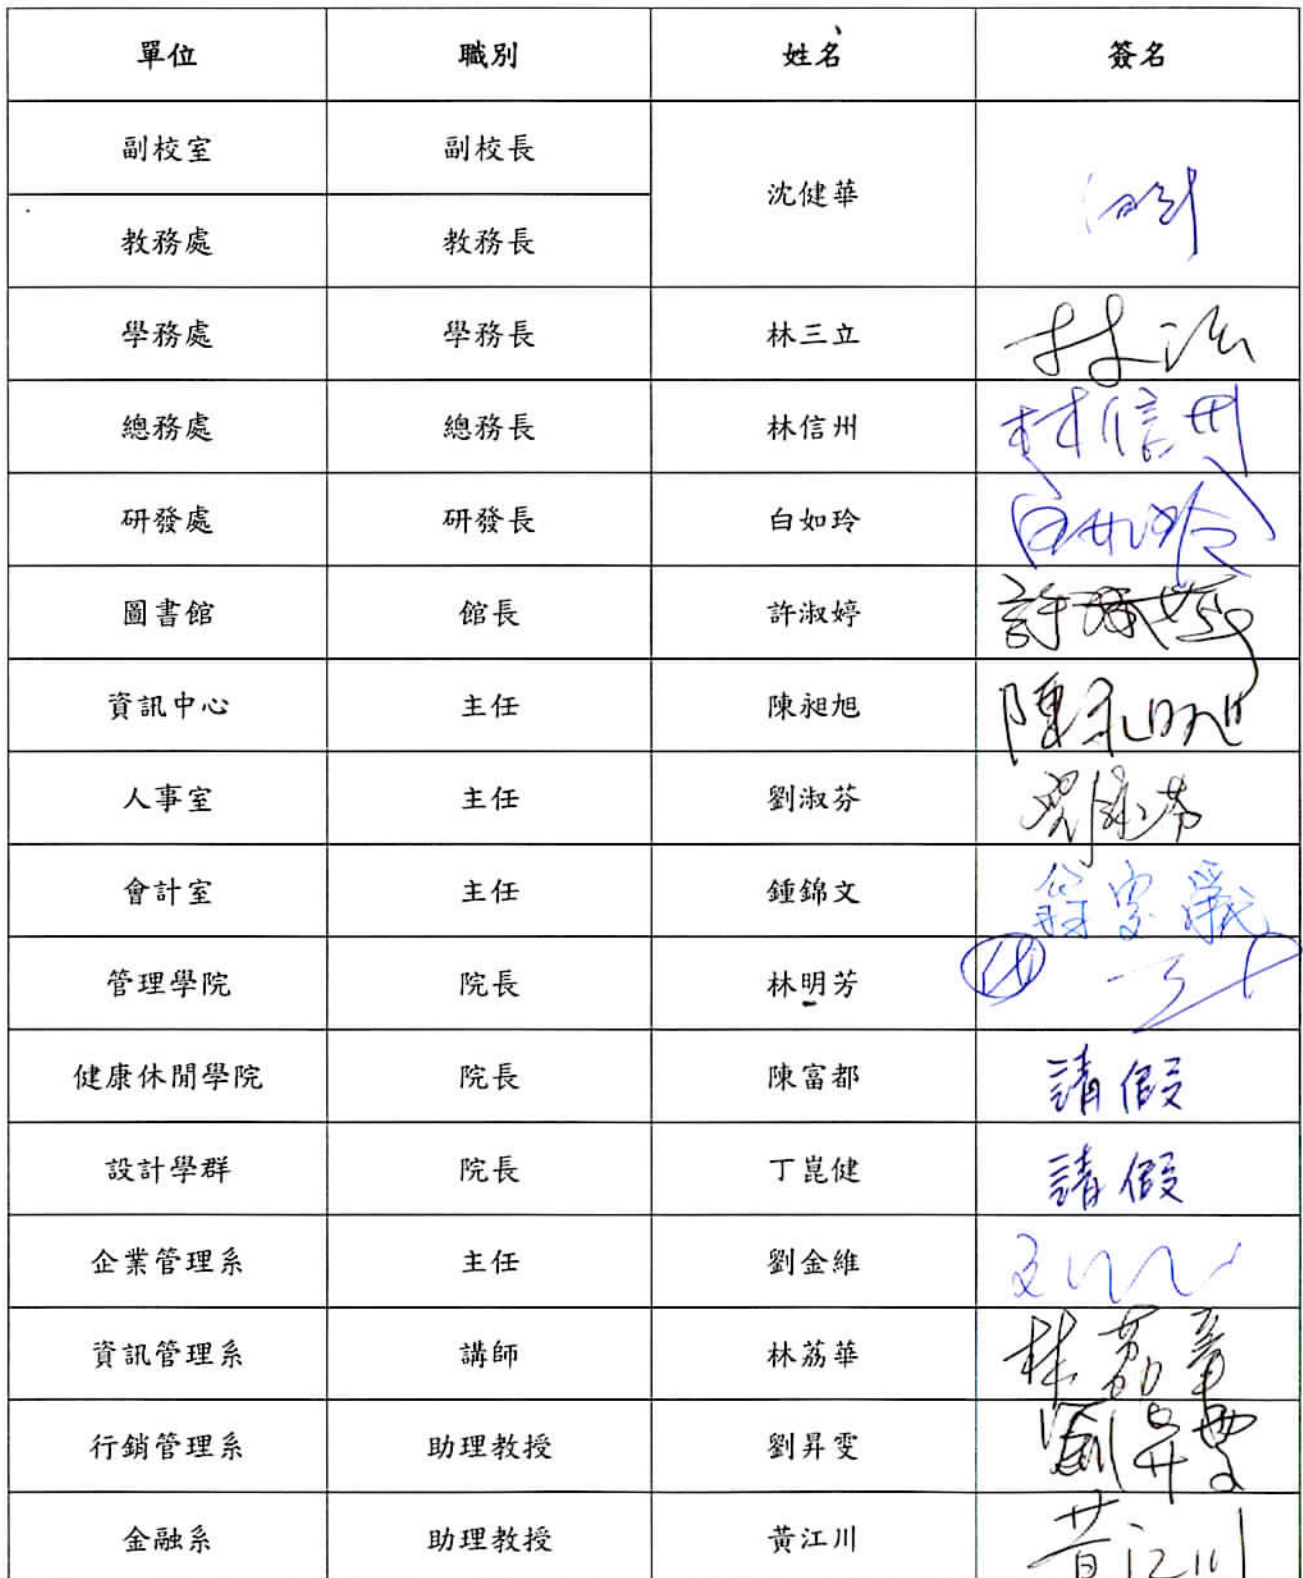 單位 職別 姓名 簽名
副校室 副校長 沈健華
教務處 教務長
學務處 學務長 林三立
總務處 總務長 林信州 林信州
研發處 研發長 白如玲 白如玲
圖書館 館長 許淑婷 許淑婷
資訊中心 主任 陳昶旭 陳昶旭
人事室 主任 劉淑芬 劉淑芬
會計室 主任 鍾錦文
管理學院 院長 林明芳
健康休閒學院 院長 陳富都 請假
設計學群 院長 丁崑健 請假
企業管理系 主任 劉金維
資訊管理系 講師 林荔華 林荔華
行銷管理系 助理教授 劉昇雯 劉昇雯
金融系 助理教授 黃江川 黃江川